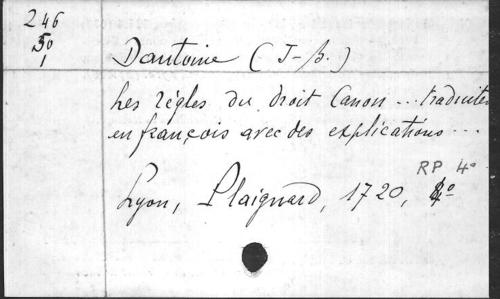 246
50
1
Dantoine (J-B.)
Les règles du droit Canon ... traduites
en françois avec des explications ...
RP 4°
Lyon, Plaignard, 1720, 4°